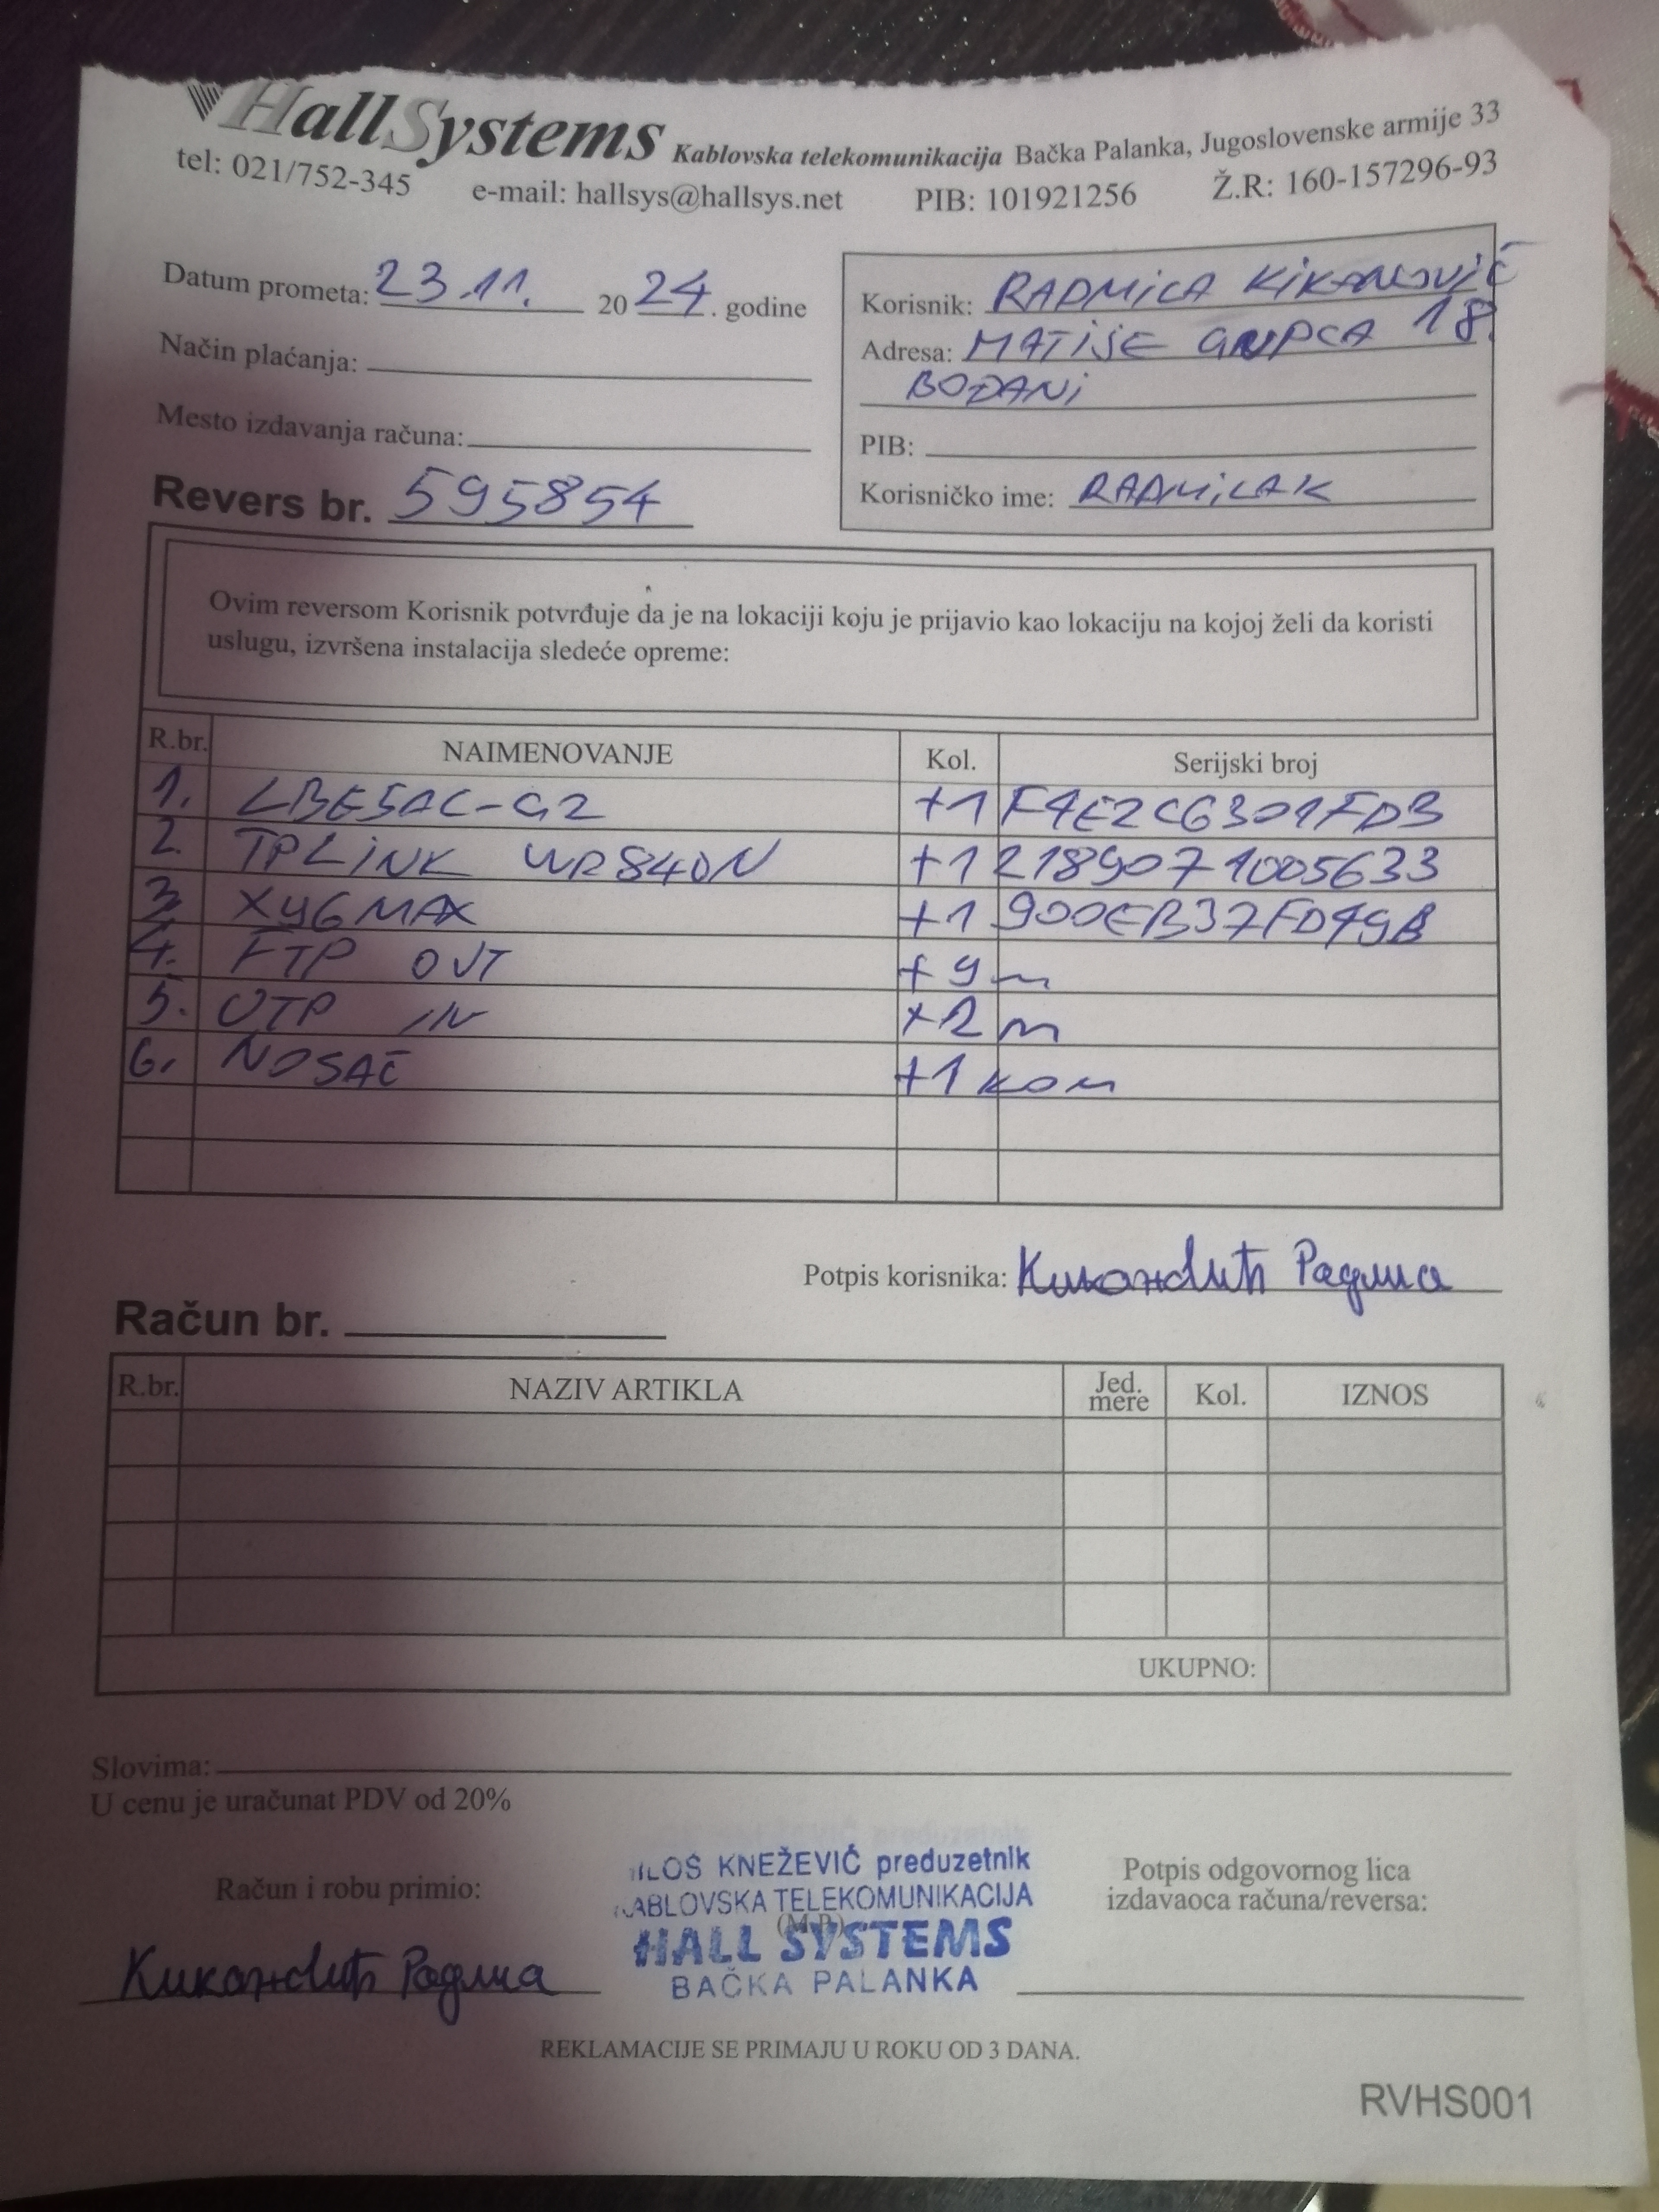 HallSystems Kablovska telekomunikacija Bačka Palanka, Jugoslovenske armije 33
tel: 021/752-345 e-mail: hallsys@hallsys.net PIB: 101921256 Ž.R: 160-157296-93
Datum prometa: 23.11. 2024. godine
Način plaćanja:
Mesto izdavanja računa:
Revers br. 595854
Korisnik: RADMILA KIKANOVIĆ
Adresa: MATIJE GUPCA 18.
BOĐANI
PIB:
Korisničko ime: RADMILAK
Ovim reversom Korisnik potvrđuje da je na lokaciji koju je prijavio kao lokaciju na kojoj želi da koristi
uslugu, izvršena instalacija sledeće opreme:
R.br. NAIMENOVANJE Kol. Serijski broj
1. LBE5AC-G2 +1 F4E2C6301FDB
2. TPLINK WR840N +1 2189071005633
3. X96MAX +1 900EB37FD49B
4. FTP OUT +9m
5. UTP IN +2m
6. NOSAČ +1 kom
Potpis korisnika:
Račun br.
R.br. NAZIV ARTIKLA Jed. mere Kol. IZNOS
UKUPNO:
Slovima:
U cenu je uračunat PDV od 20%
Račun i robu primio:
ILOŠ KNEŽEVIĆ preduzetnik
ABLOVSKA TELEKOMUNIKACIJA
(M.P.)
HALL SYSTEMS
BAČKA PALANKA
Potpis odgovornog lica
izdavaoca računa/reversa:
REKLAMACIJE SE PRIMAJU U ROKU OD 3 DANA.
RVHS001